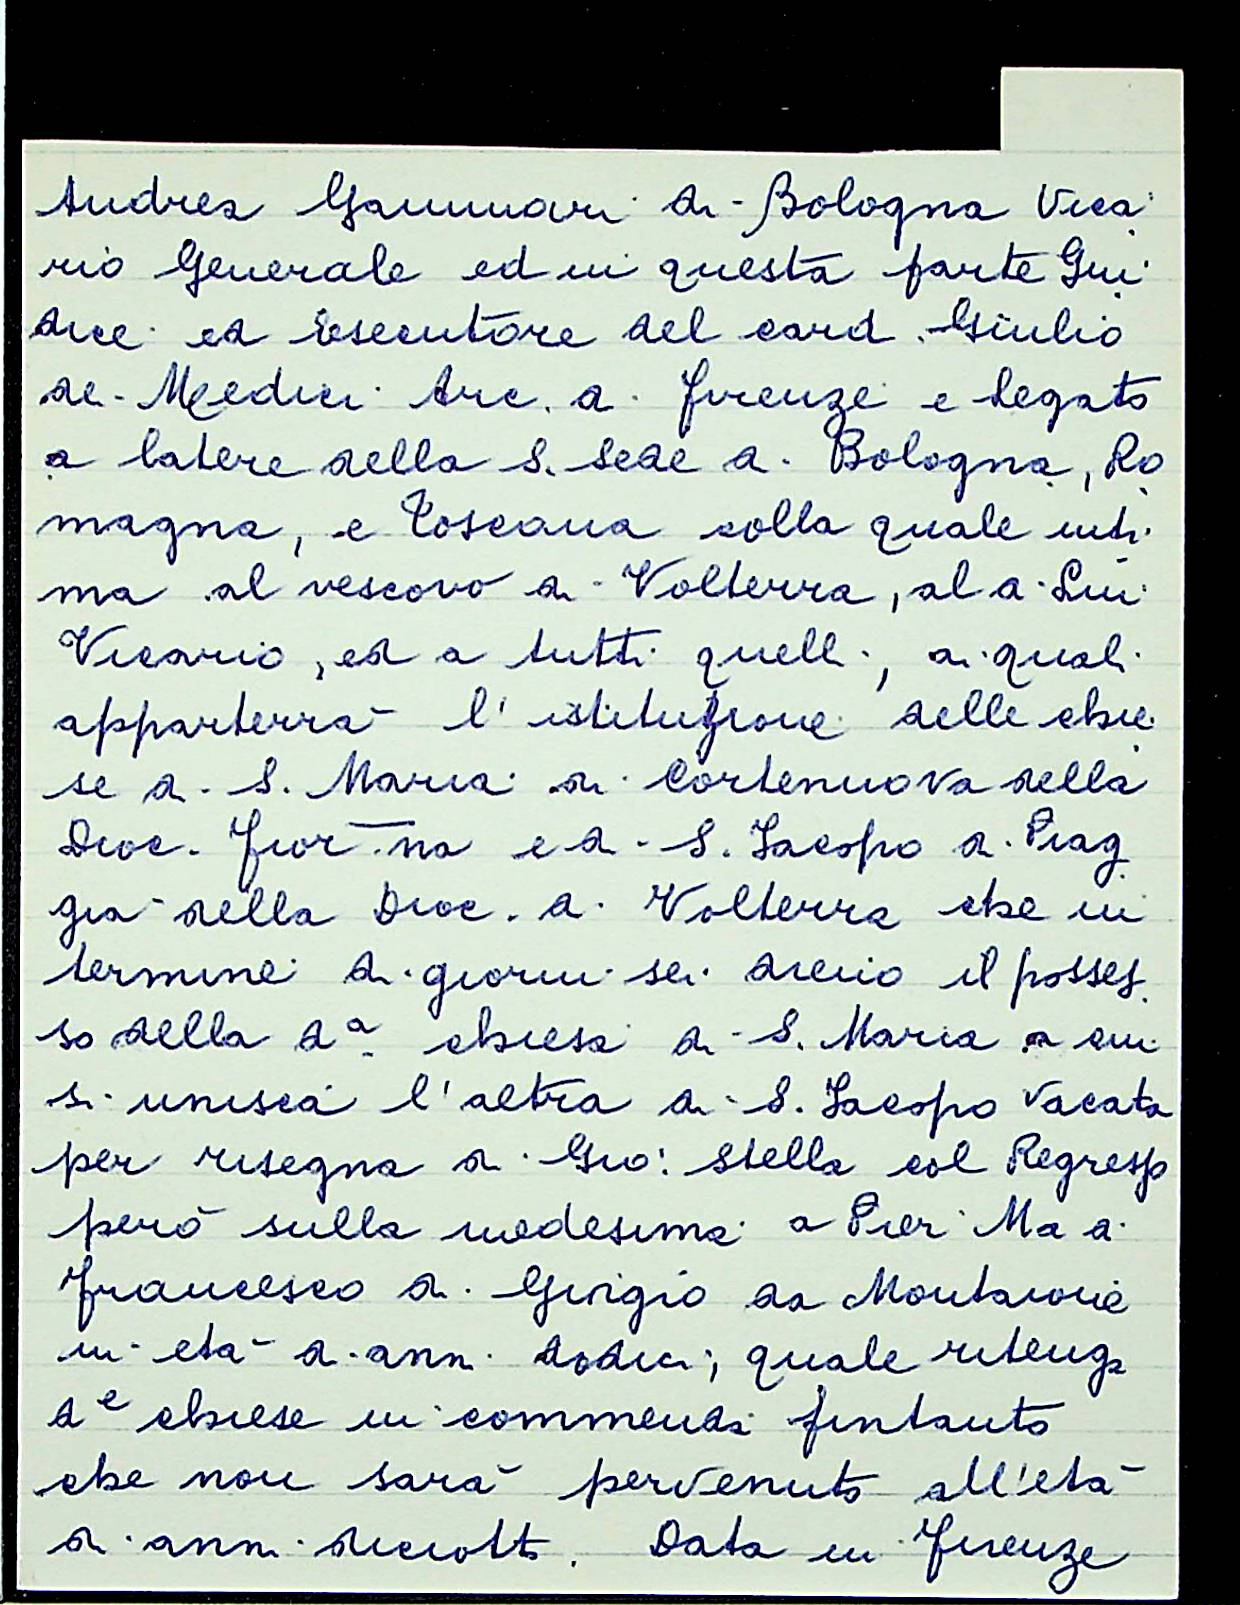 Andrea Gammari di Bologna Vica
rio Generale ed in questa parte Giu
dice ed Esecutore del card. Giulio
de Medici Arc. di Firenze e Legato
a latere della S. Sede di Bologna, Ro
magna, e Toscana colla quale inti
ma al vescovo di Volterra, al di Lui
Vicario, ed a tutti quelli, ai quali
apparterrà l'istituzione delle chie
se di S. Maria di Cortenuova della
Dioc. Fior.na e di S. Iacopo a Piag
gia della Dioc. di Volterra che in
termine di giorni sei dieno il posses
so della da chiesa di S. Maria a cui
si unisca l'altra di S. Iacopo vacata
per risegna di Gio: Stella col Regresso
però sulla medesima a Pier Ma di
Francesco di Giorgio da Montaione
in età di anni dodici; quale ritenga
de chiese in commenda fintanto
che non sarà pervenuto all'età
di anni diciotto. Data in Firenze